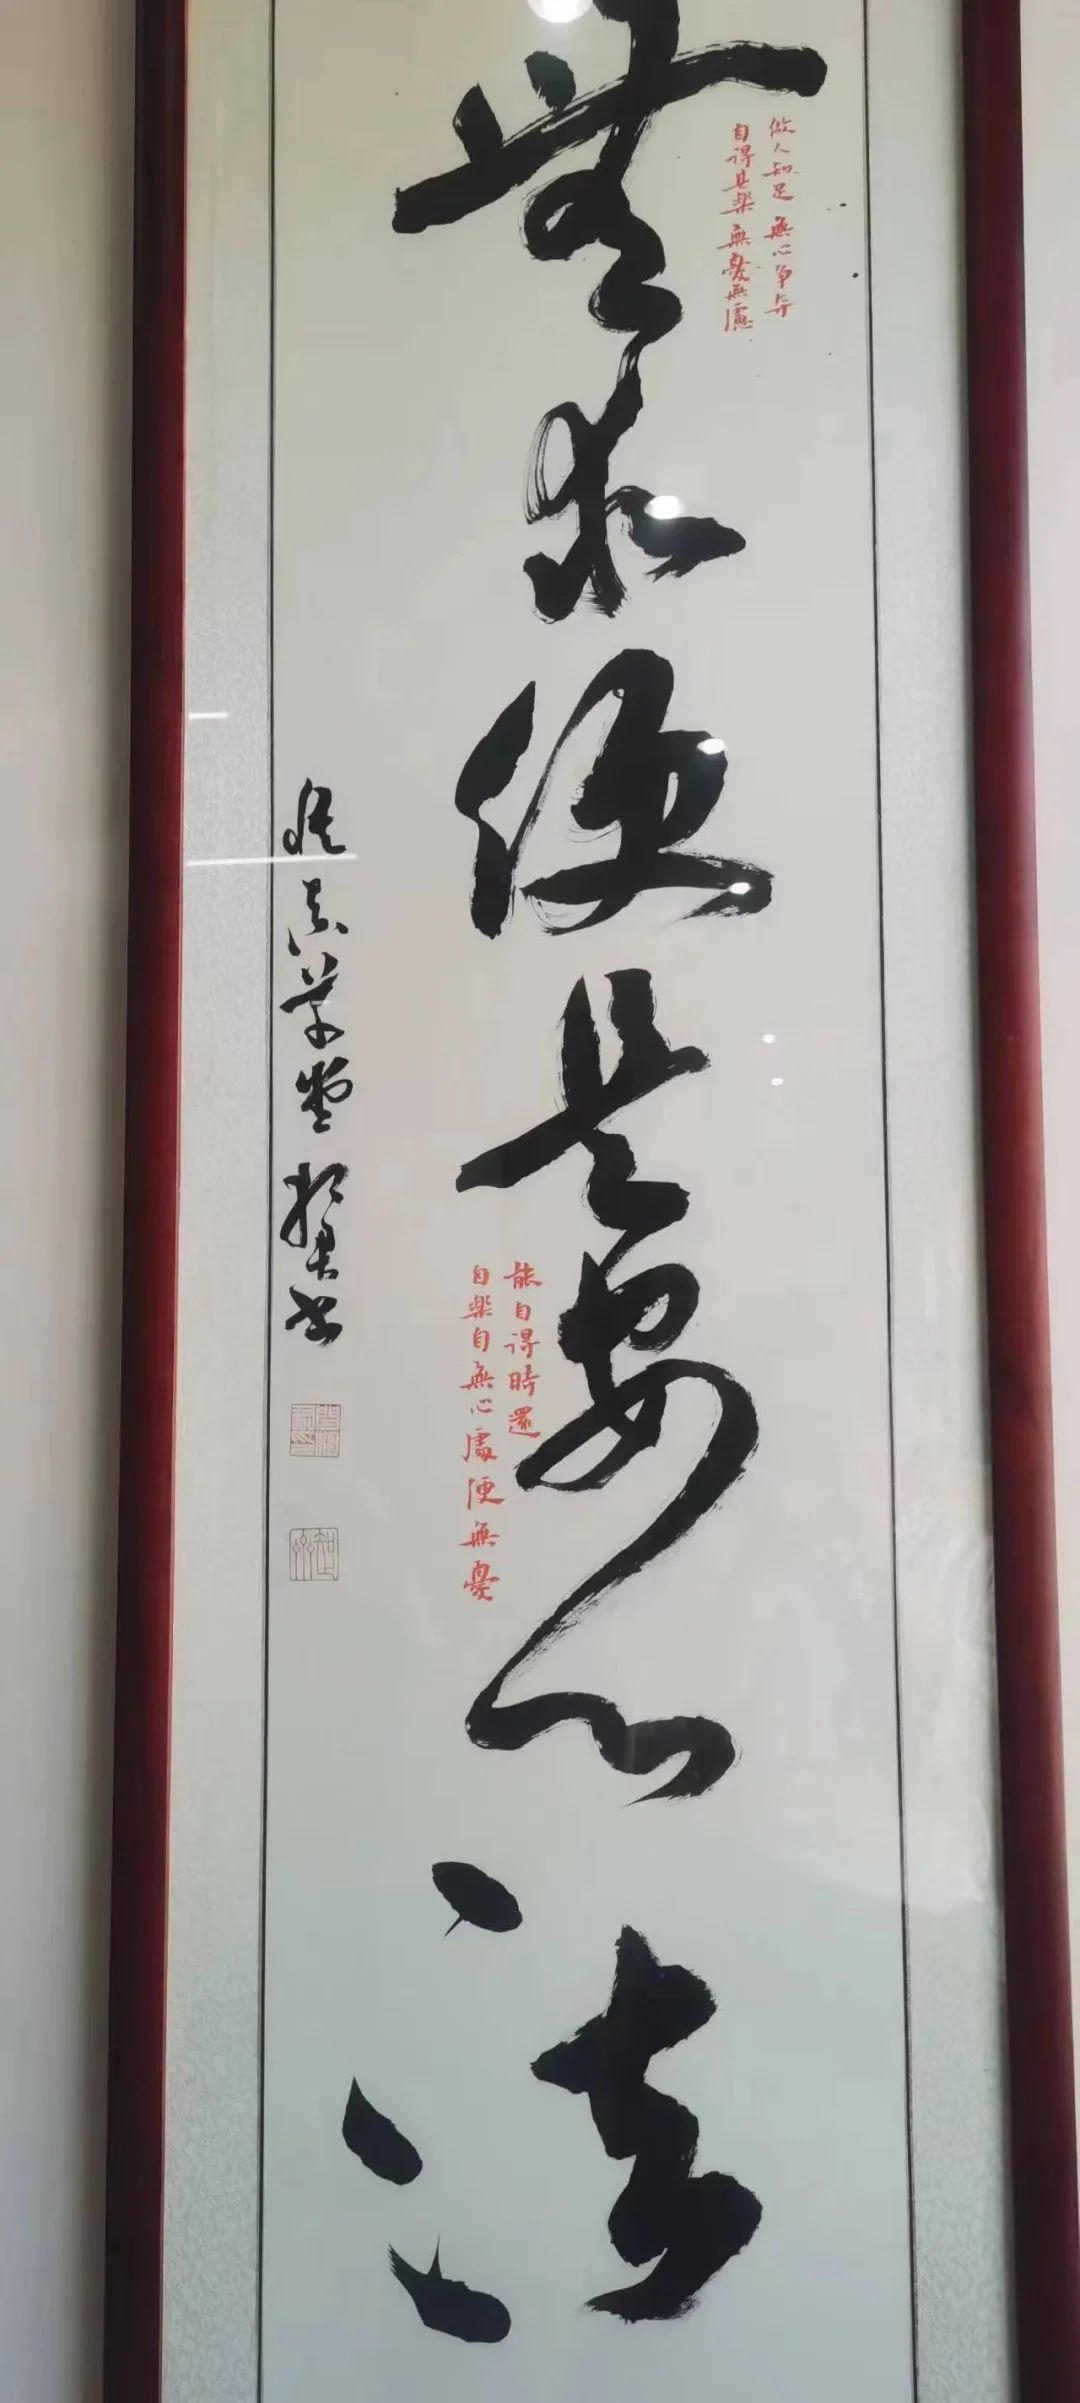 無求便是安心法
做人知足 無心争
自得其楽 無憂無慮
能自得時還
自楽自無心處便無憂
真草堂 书